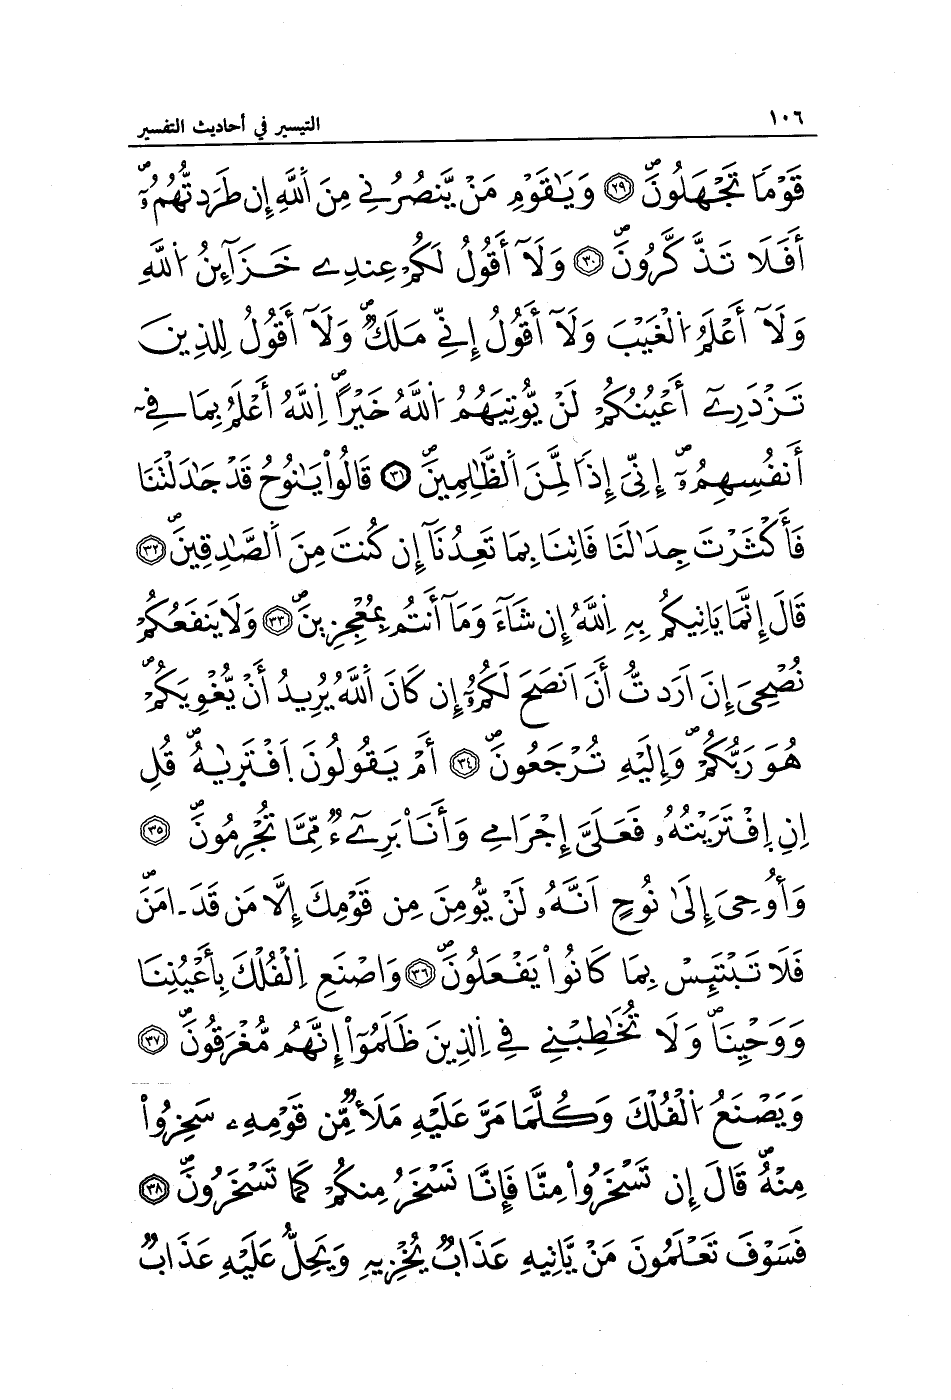 ١٠٦ التيسير في أحاديث التفسير
قَوْماً تَجْهَلُونَۖ ٢٩ وَيَٰقَوْمِ مَنْ يَّنصُرُنِے مِنَ اَ۬للَّهِ إِن طَرَدتُّهُمُۥٓۖ
أَفَلَا تَذَّكَّرُونَۖ ٣٠ وَلَآ أَقُولُ لَكُمْ عِندِے خَزَآئِنُ اُ۬للَّهِ
وَلَآ أَعْلَمُ اُ۬لْغَيْبَ وَلَآ أَقُولُ إِنِّے مَلَكٞۖ وَلَآ أَقُولُ لِلذِينَ
تَزْدَرِےٓ أَعْيُنُكُمْ لَنْ يُّوتِيَهُمُ اُ۬للَّهُ خَيْراًۖ اِ۬للَّهُ أَعْلَمُ بِمَا فِےٓ
أَنفُسِهِمُۥٓۖ إِنِّيَ إِذاً لَّمِنَ اَ۬لظَّٰلِمِينَۖ ٣١ قَالُواْ يَٰنُوحُ قَدْ جَٰدَلْتَنَا
فَأَكْثَرْتَ جِدَٰلَنَا فَاتِنَا بِمَا تَعِدُنَآ إِن كُنتَ مِنَ اَ۬لصَّٰدِقِينَۖ ٣٢
قَالَ إِنَّمَا يَاتِيكُم بِهِ اِ۬للَّهُ إِن شَآءَ وَمَآ أَنتُم بِمُعْجِزِينَۖ ٣٣ وَلَا يَنفَعُكُمْ
نُصْحِيَ إِنَ اَرَدتُّ أَنَ اَنصَحَ لَكُمُۥٓ إِن كَانَ اَ۬للَّهُ يُرِيدُ أَنْ يُّغْوِيَكُمْۖ
هُوَ رَبُّكُمْۖ وَإِلَيْهِ تُرْجَعُونَۖ ٣٤ أَمْ يَقُولُونَ اَ۪فْتَر۪يٰهُۖ قُلِ
اِنِ اِ۪فْتَرَيْتُهُۥ فَعَلَيَّ إِجْرَامِے وَأَنَا۠ بَرِےٓءٞ مِّمَّا تُجْرِمُونَۖ ٣٥
وَأُوحِيَ إِلَىٰ نُوحٍ اَنَّهُۥ لَنْ يُّومِنَ مِن قَوْمِكَ إِلَّا مَن قَدَ اٰمَنَۖ
فَلَا تَبْتَئِسْ بِمَا كَانُواْ يَفْعَلُونَۖ ٣٦ وَاصْنَعِ اِ۬لْفُلْكَ بِأَعْيُنِنَا
وَوَحْيِنَاۖ وَلَا تُخَٰطِبْنِے فِي اِ۬لذِينَ ظَلَمُوٓاْ إِنَّهُم مُّغْرَقُونَۖ ٣٧
وَيَصْنَعُ اُ۬لْفُلْكَ وَكُلَّمَا مَرَّ عَلَيْهِ مَلَأٞ مِّن قَوْمِهِۦ سَخِرُواْ
مِنْهُۖ قَالَ إِن تَسْخَرُواْ مِنَّا فَإِنَّا نَسْخَرُ مِنكُمْ كَمَا تَسْخَرُونَۖ ٣٨
فَسَوْفَ تَعْلَمُونَ مَنْ يَّاتِيهِ عَذَابٞ يُخْزِيهِ وَيَحِلُّ عَلَيْهِ عَذَابٞ